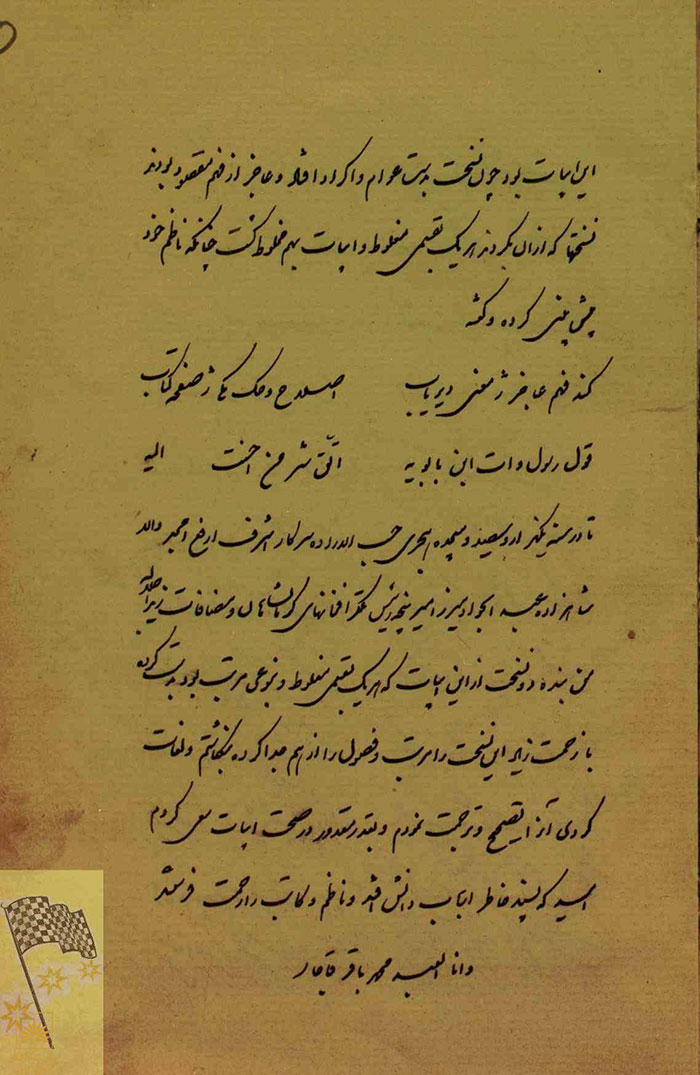 این ابیات بود چون نسخت بدست عوام و اکراد افتاد و عاجز از فهم مقصود بودند
نسختها که ازان بکردند هر یک بقسمی مغلوط و ابیات بهم مخلوط گشت چنانکه ناظم خود
پیش بینی کرده و گفته
کند فهم عاجز ز معنی دیریاب اصلاح و حک ز صفحه کتاب
قول رسول وات ابن بابویه اتق شر من احسنت الیه
تا در سنه یکهزار و سیصد و هجری حسب سرکار اشرف ارفع امجد والد
شاهزاده عبد الجواد میرزا امیر پنجه رئیس تلگرافخانهای کرمانشاهان و مضافات زید اجلاله
من بنده دو نسخت از این ابیات که هر یک بقسمی مغلوط و بنوعی مرتب بود بدست کرده
با زحمت زیاد این نسخت را مرتب و فصول را از هم جدا کرده بنگاشتم و لغات
کردی آنرا تصحیح و ترجمت نمودم و بقدر مقدور در صحت ابیات سعی کردم
امید که پسند خاطر ارباب دانش افتد و ناظم و کاتب را رحمت فرستند
وانا العبد محمد باقر قاجار